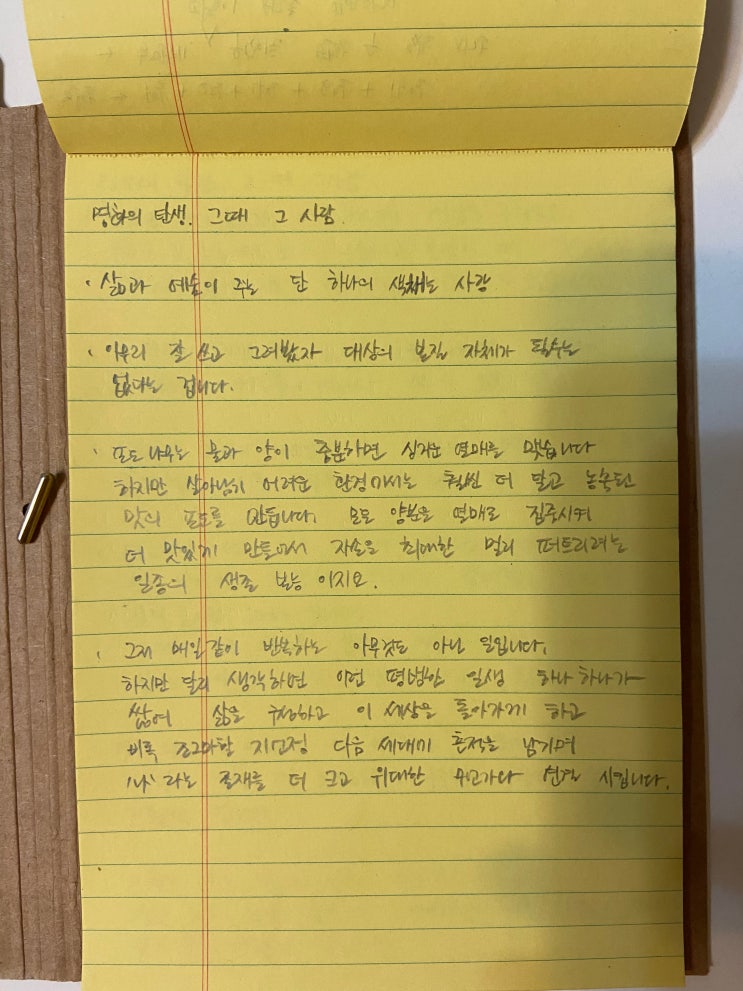 명화의 탄생. 그때 그 사람.
· 삶과 예술이 주는 단 하나의 색채는 사랑
· 아무리 잘 쓰고 그려봤자 대상의 본질 자체가 될수는
없다는 겁니다.
· 포도나무는 물과 양이 충분하면 싱거운 열매를 맺습니다
하지만 살아남기 어려운 환경에서는 훨씬 더 달고 농축된
맛의 포도를 만듭니다. 모든 양분을 열매로 집중시켜
더 맛있게 만들어서 자손을 최대한 멀리 퍼트리려는
일종의 생존 본능 이지요.
· 그저 매일같이 반복하는 아무것도 아닌 일입니다.
하지만 달리 생각하면 이런 평범한 일생 하나 하나가
쌓여 삶을 구성하고 이 세상을 돌아가게 하고
비록 조그마할 지언정 다음 세대에 흔적을 남기며
'나' 라는 존재를 더 크고 위대한 무언가와 연결 시킵니다.